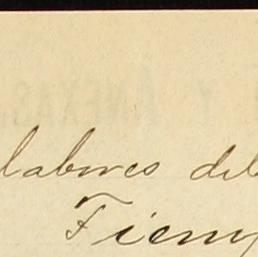 Y ANEXAS
labores del
Tiem